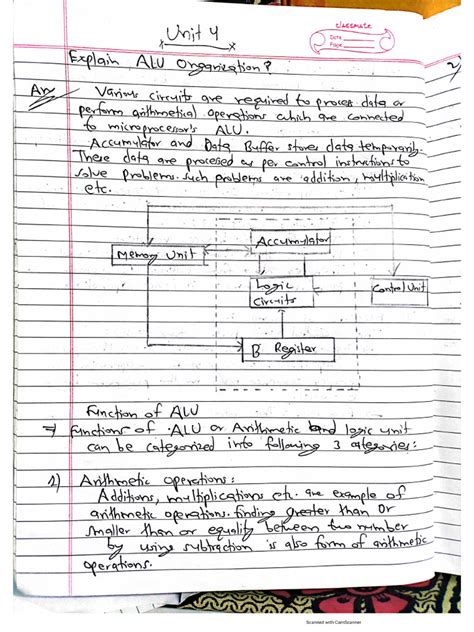 Unit 4
classmate
Date
Page
Explain ALU Organization?
2)
Ans Various circuits are required to process data or
perform arithmetical operations which are connected
to microprocessor's ALU.
Accumulator and Data Buffer stores data temporarily.
These data are processed as per control instructions to
solve problems. such problems are addition, multiplication
etc.
Accumulator
Memory Unit
Logic
Circuits
Control Unit
B Register
Function of ALU
⇒ Functions of ALU or Arithmetic and logic unit
can be categorized into following 3 categories:
1) Arithmetic operations:
Additions, multiplications etc. are example of
arithmetic operations. finding greater than or
smaller than or equality between two number
by using subtraction is also form of arithmetic
operations.
Scanned with CamScanner